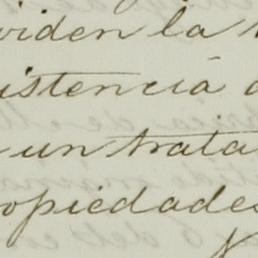 viden la
istencia
un trata
opiedades